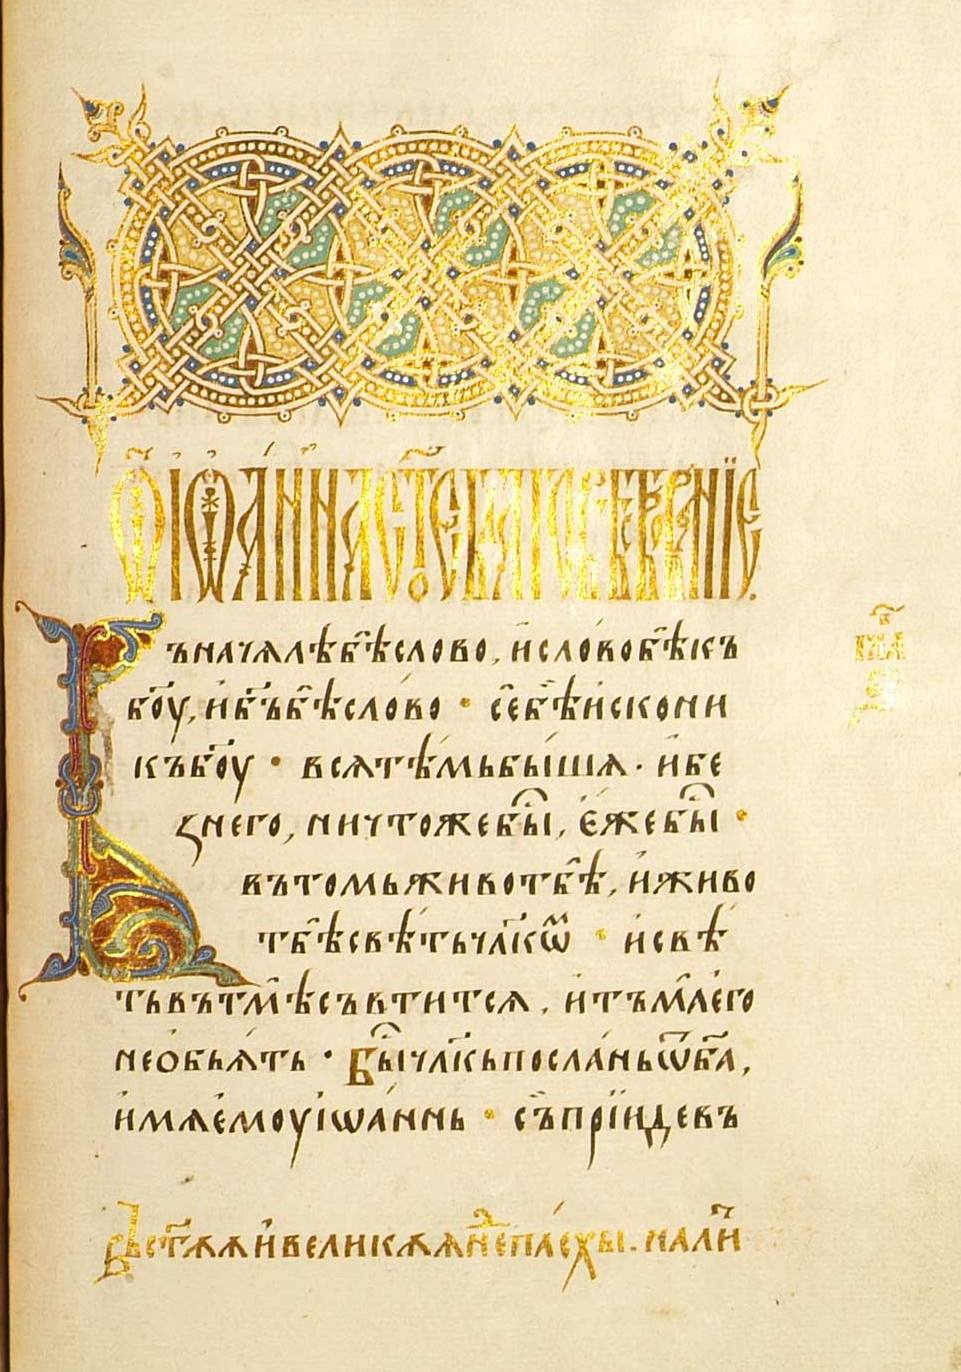 Ѿ іѡанна ст҃ое бл҃говѣствованїе.
Въначꙗлѣбѣ҃слово, и҆словобѣ҃къ
бг҃оу, и҆бг҃ъбѣ҃слово · се҆бѣ҃искони
къбг҃оу · всѧтѣмьбышѧ · и҆бе
ꙁнего, ничтожебы҃, є҆жебы҃ ·
вътомьживотбѣ҃, и҆живо
тбѣ҃свѣтьчл҃кѡм · и҆свѣ
тьвътмѣ҃съвтитсѧ, и҆тъмаего
необьѧть · Бы҃чл҃кьпосланьѿба҃,
и҆мѧе҆моуіѡаннь · съ҆прїидевъ
Въст҃ꙋѧи҆великѧѧне҃пасхы. налі